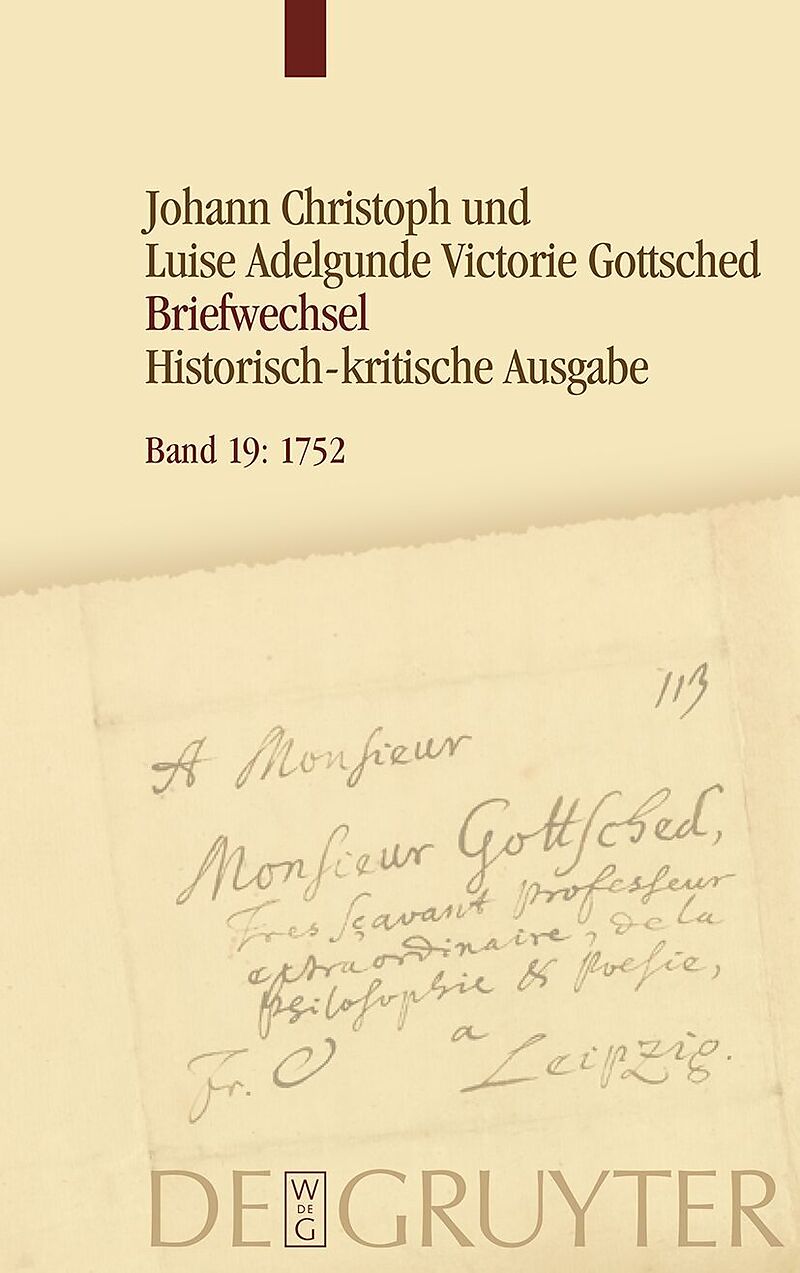 Johann Christoph und
Luise Adelgunde Victorie Gottsched
Briefwechsel
Historisch-kritische Ausgabe
Band 19: 1752
113
A Monsieur
Monsieur Gottsched,
Tres sçavant professeur
extraordinaire, de la
philosophie & Poesie,
a
Fr. Leipzig.
DE GRUYTER
W
DE
G